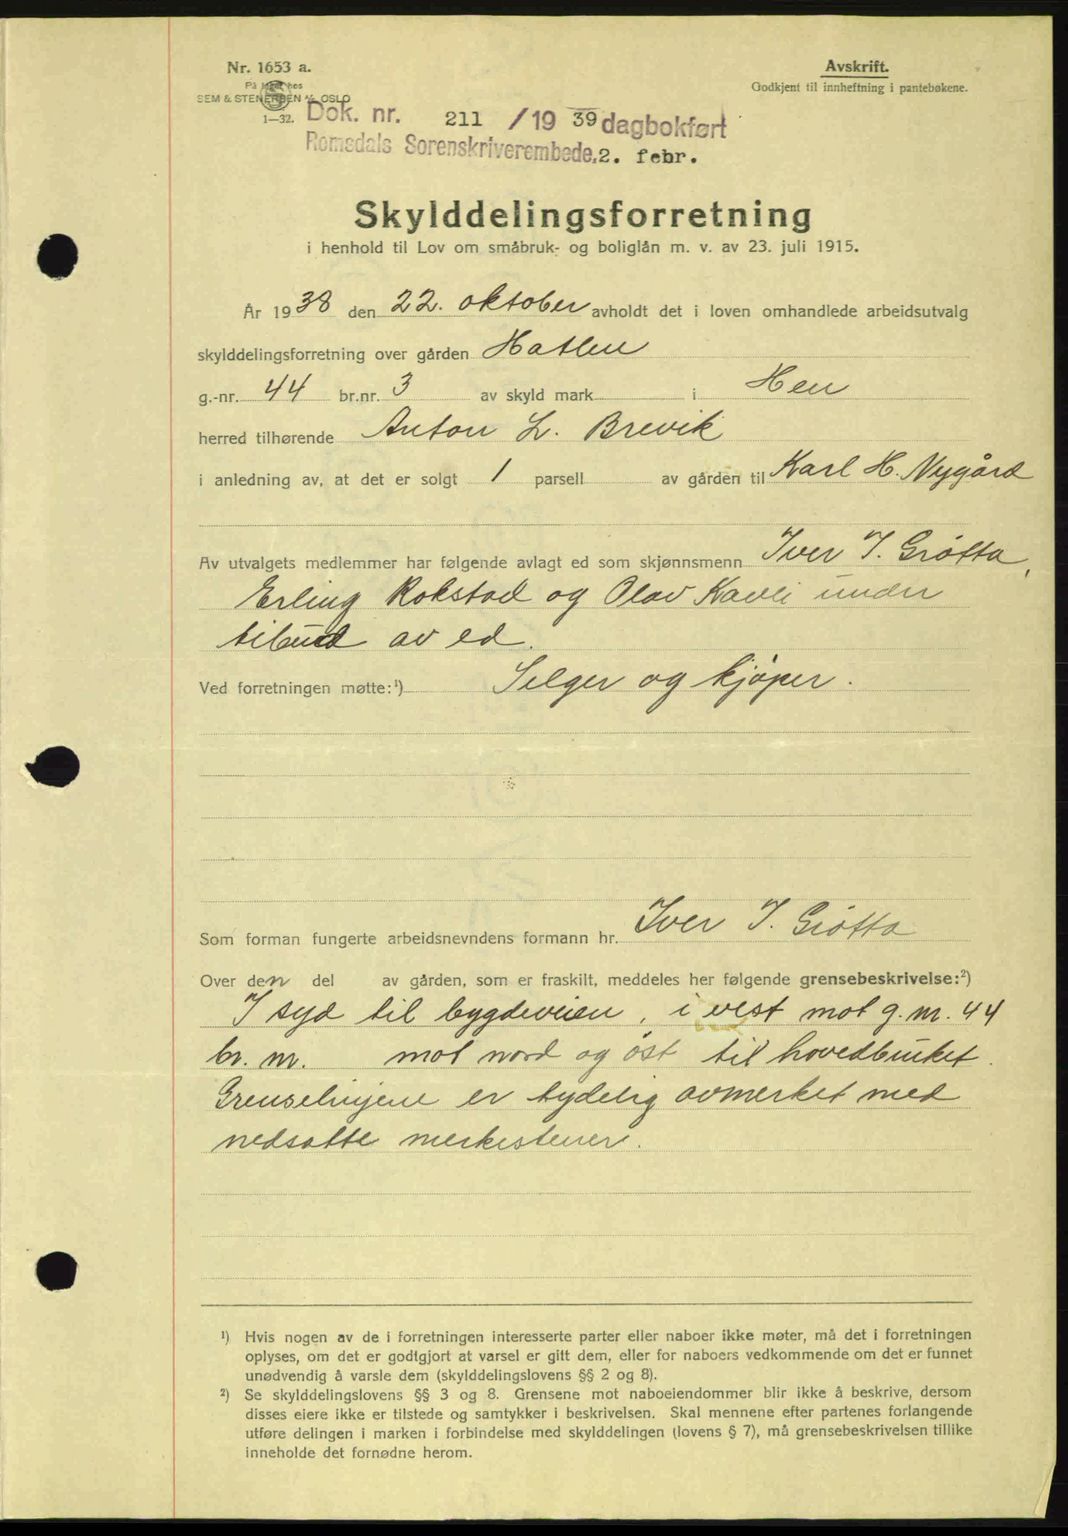 Nr. 1653 a.
Avskrift.
På lager hos
Godkjent til innheftning i pantebøkene.
SEM & STENERSEN A/S OSLO
1—32.
Dok. nr. 211 / 1939 dagbokført
Romsdals Sorenskriverembede. 2. febr.
Skylddelingsforretning
i henhold til Lov om småbruk- og boliglån m. v. av 23. juli 1915.
År 1938 den 22. oktober avholdt det i loven omhandlede arbeidsutvalg
skylddelingsforretning over gården Hatlen
g.-nr. 44 br.nr. 3 av skyld mark i Hen
herred tilhørende Anton L. Brevik
i anledning av, at det er solgt 1 parsell av gården til Karl H. Nygård
Av utvalgets medlemmer har følgende avlagt ed som skjønnsmenn Iver I. Grøtta,
Erling Rokstad og Olav Kavli under
tilbud av ed.
Ved forretningen møtte:¹) Selger og kjøper.
Som forman fungerte arbeidsnevndens formann hr. Iver I. Grøtta
Over den del av gården, som er fraskilt, meddeles her følgende grensebeskrivelse:²)
I syd til bygdeveien, i vest mot g. nr. 44
br. nr. mot nord og øst til hovedbruket.
Grenselinjene er tydelig avmerket med
nedsatte merkestener.
¹) Hvis nogen av de i forretningen interesserte parter eller naboer ikke møter, må det i forretningen
oplyses, om det er godtgjort at varsel er gitt dem, eller for naboers vedkommende om det er funnet
unødvendig å varsle dem (skylddelingslovens §§ 2 og 8).
²) Se skylddelingslovens §§ 3 og 8. Grensene mot naboeiendommer blir ikke å beskrive, dersom
disses eiere ikke er tilstede og samtykker i beskrivelsen. Skal mennene efter partenes forlangende
utføre delingen i marken i forbindelse med skylddelingen (lovens § 7), må grensebeskrivelsen tillike
inneholde det fornødne herom.